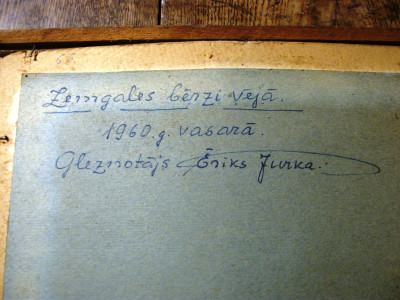 Zemgales bērzi vējā.
1960.g. vasarā.
Gleznotājs Ēriks Jurka.